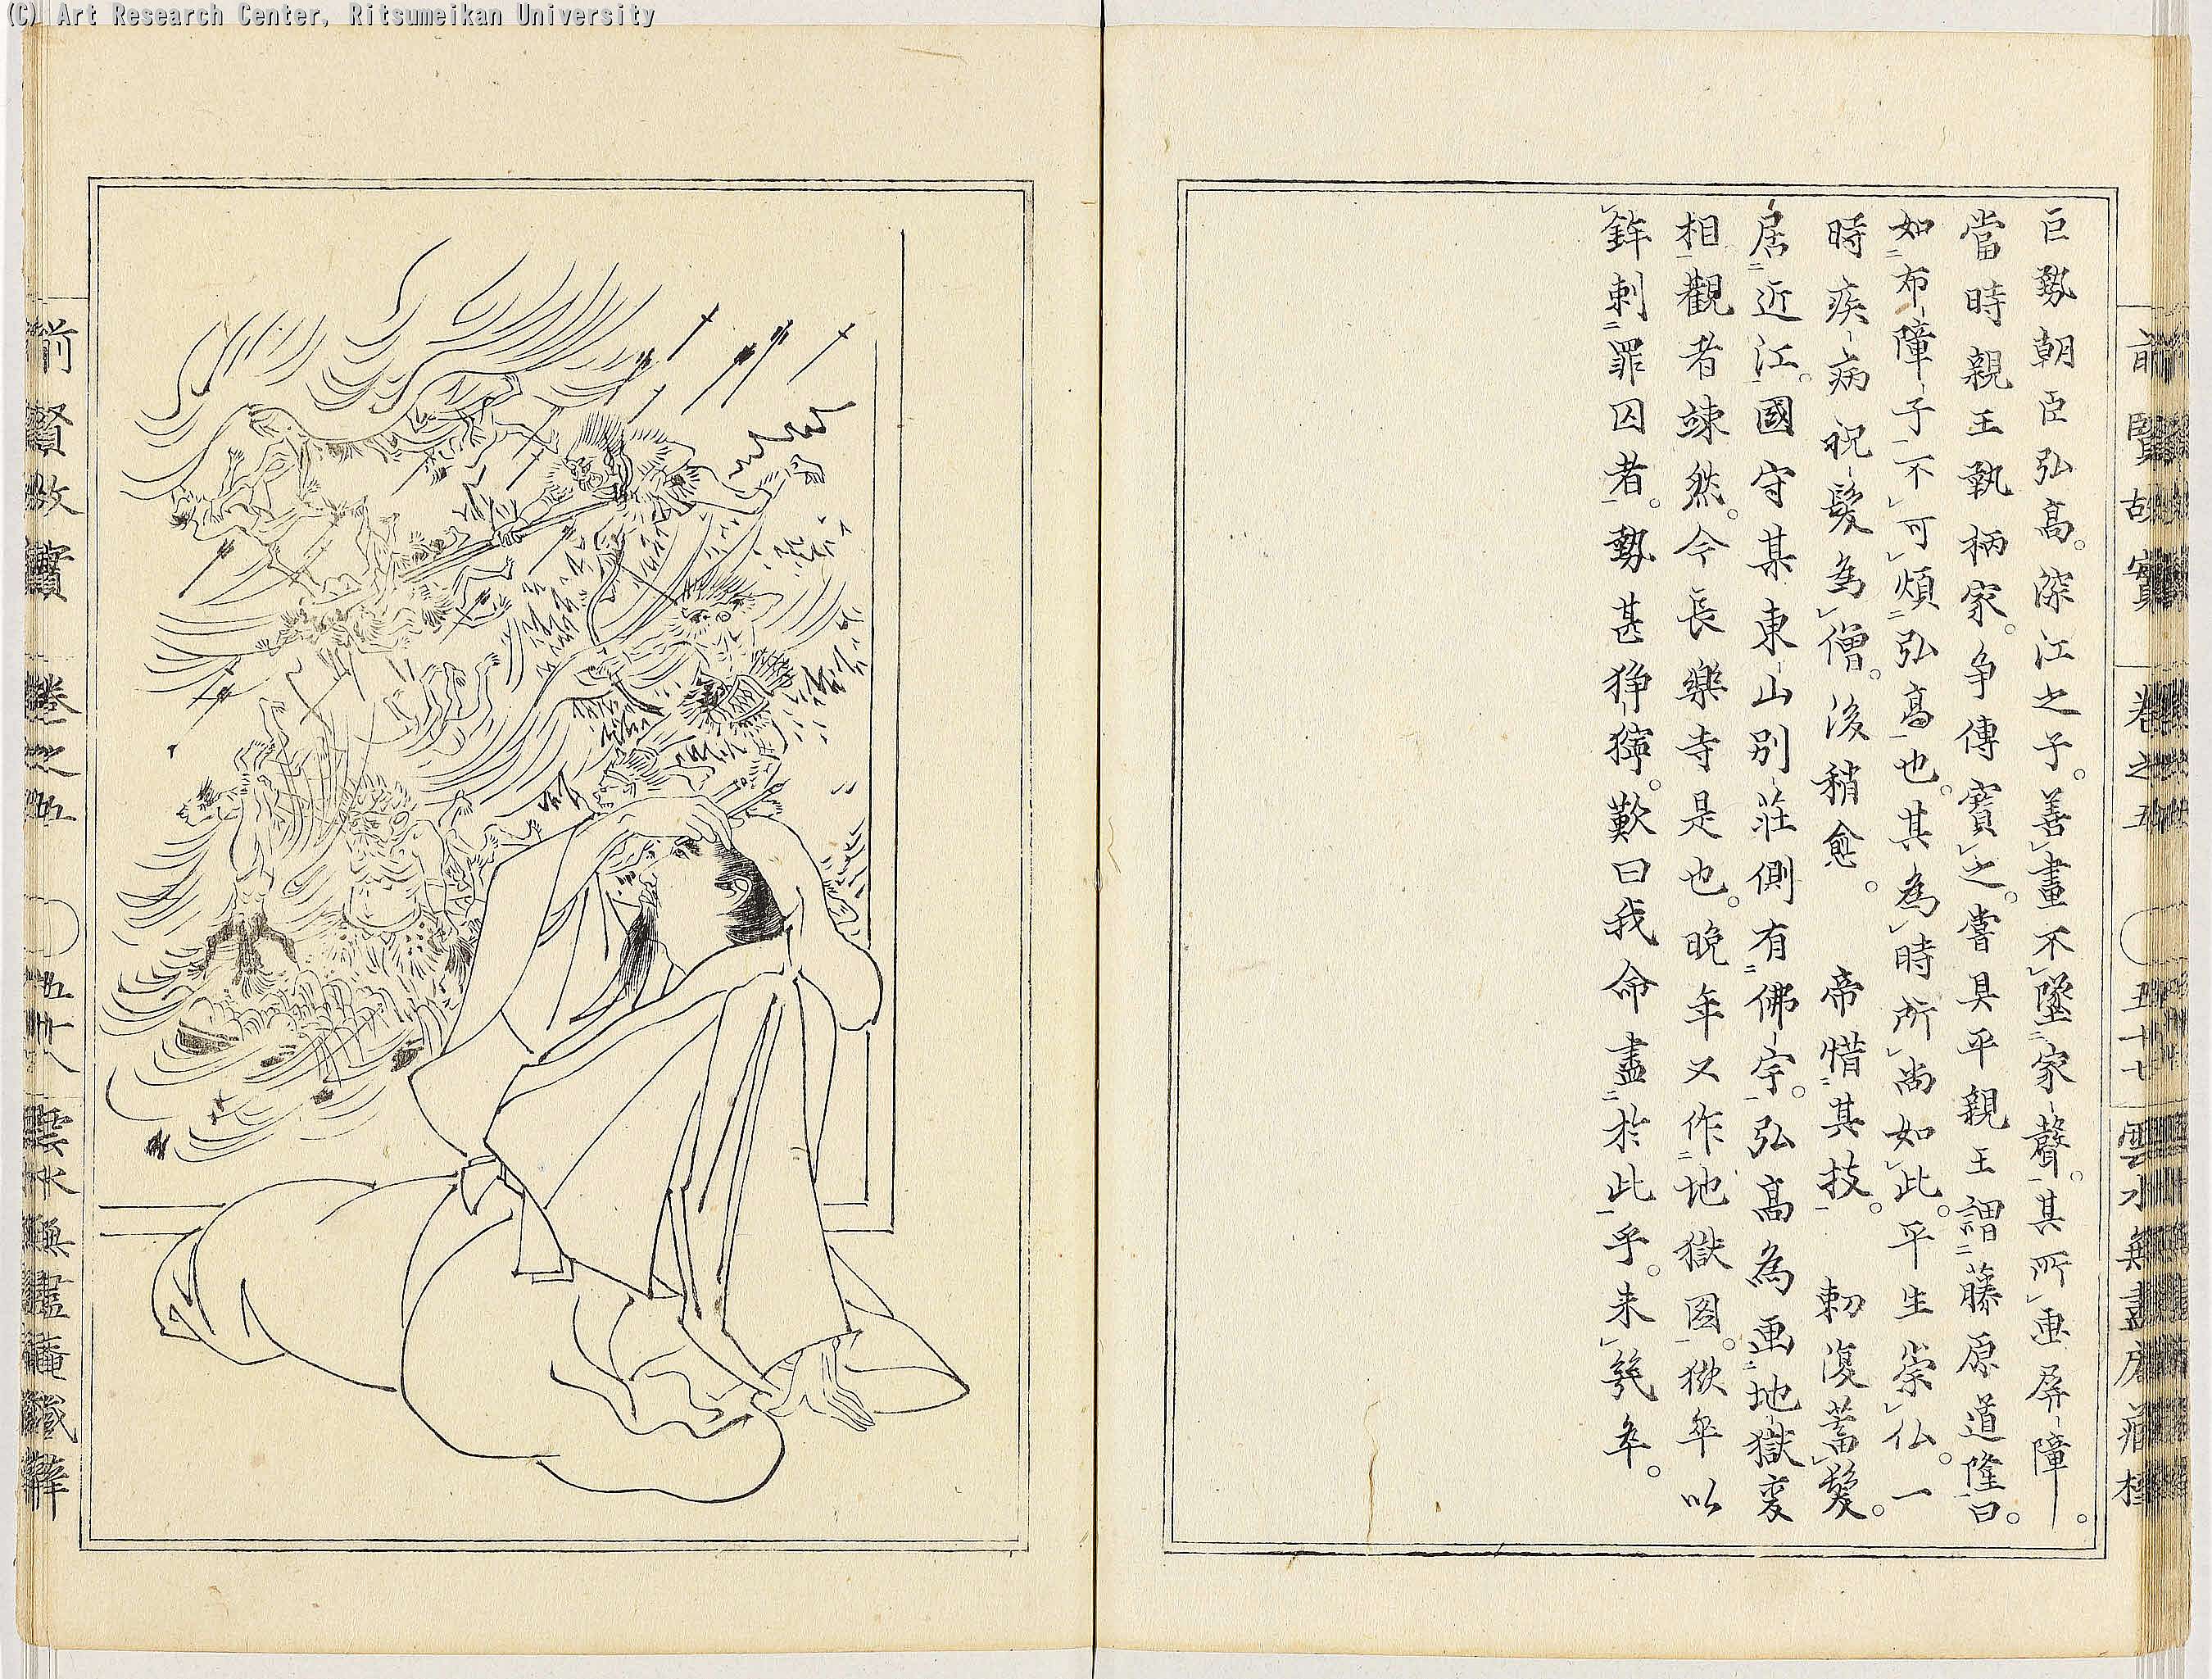 (C) Art Research Center, Ritsumeikan University
前賢故實 卷之五 五十七 雲水無盡庵藏梓
巨勢朝臣弘高。深江之子。善畫不墜家聲。其所画屏障。
當時親王執柄家。争傳寶之。嘗具平親王謂藤原道隆曰。
如布障子不可煩弘高也。其為時所尚如此。平生崇仏。一
時疾病祝髮為僧。後稍愈。 帝惜其技。 勅復蓄髮。
居近江。國守某東山別莊側有佛宇。弘高為画地獄変
相觀者竦然。今長樂寺是也。晚年又作地獄図。獄卒以
鉾刺罪囚者。勢甚猙獰。歎曰我命盡於此乎。未幾卒。
前賢故實 卷之五 五十八 雲水無盡庵藏梓